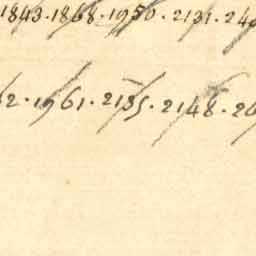 1843 · 1868 · 1950 · 2131 · 24
2 · 1961 · 2135 · 2148 · 2